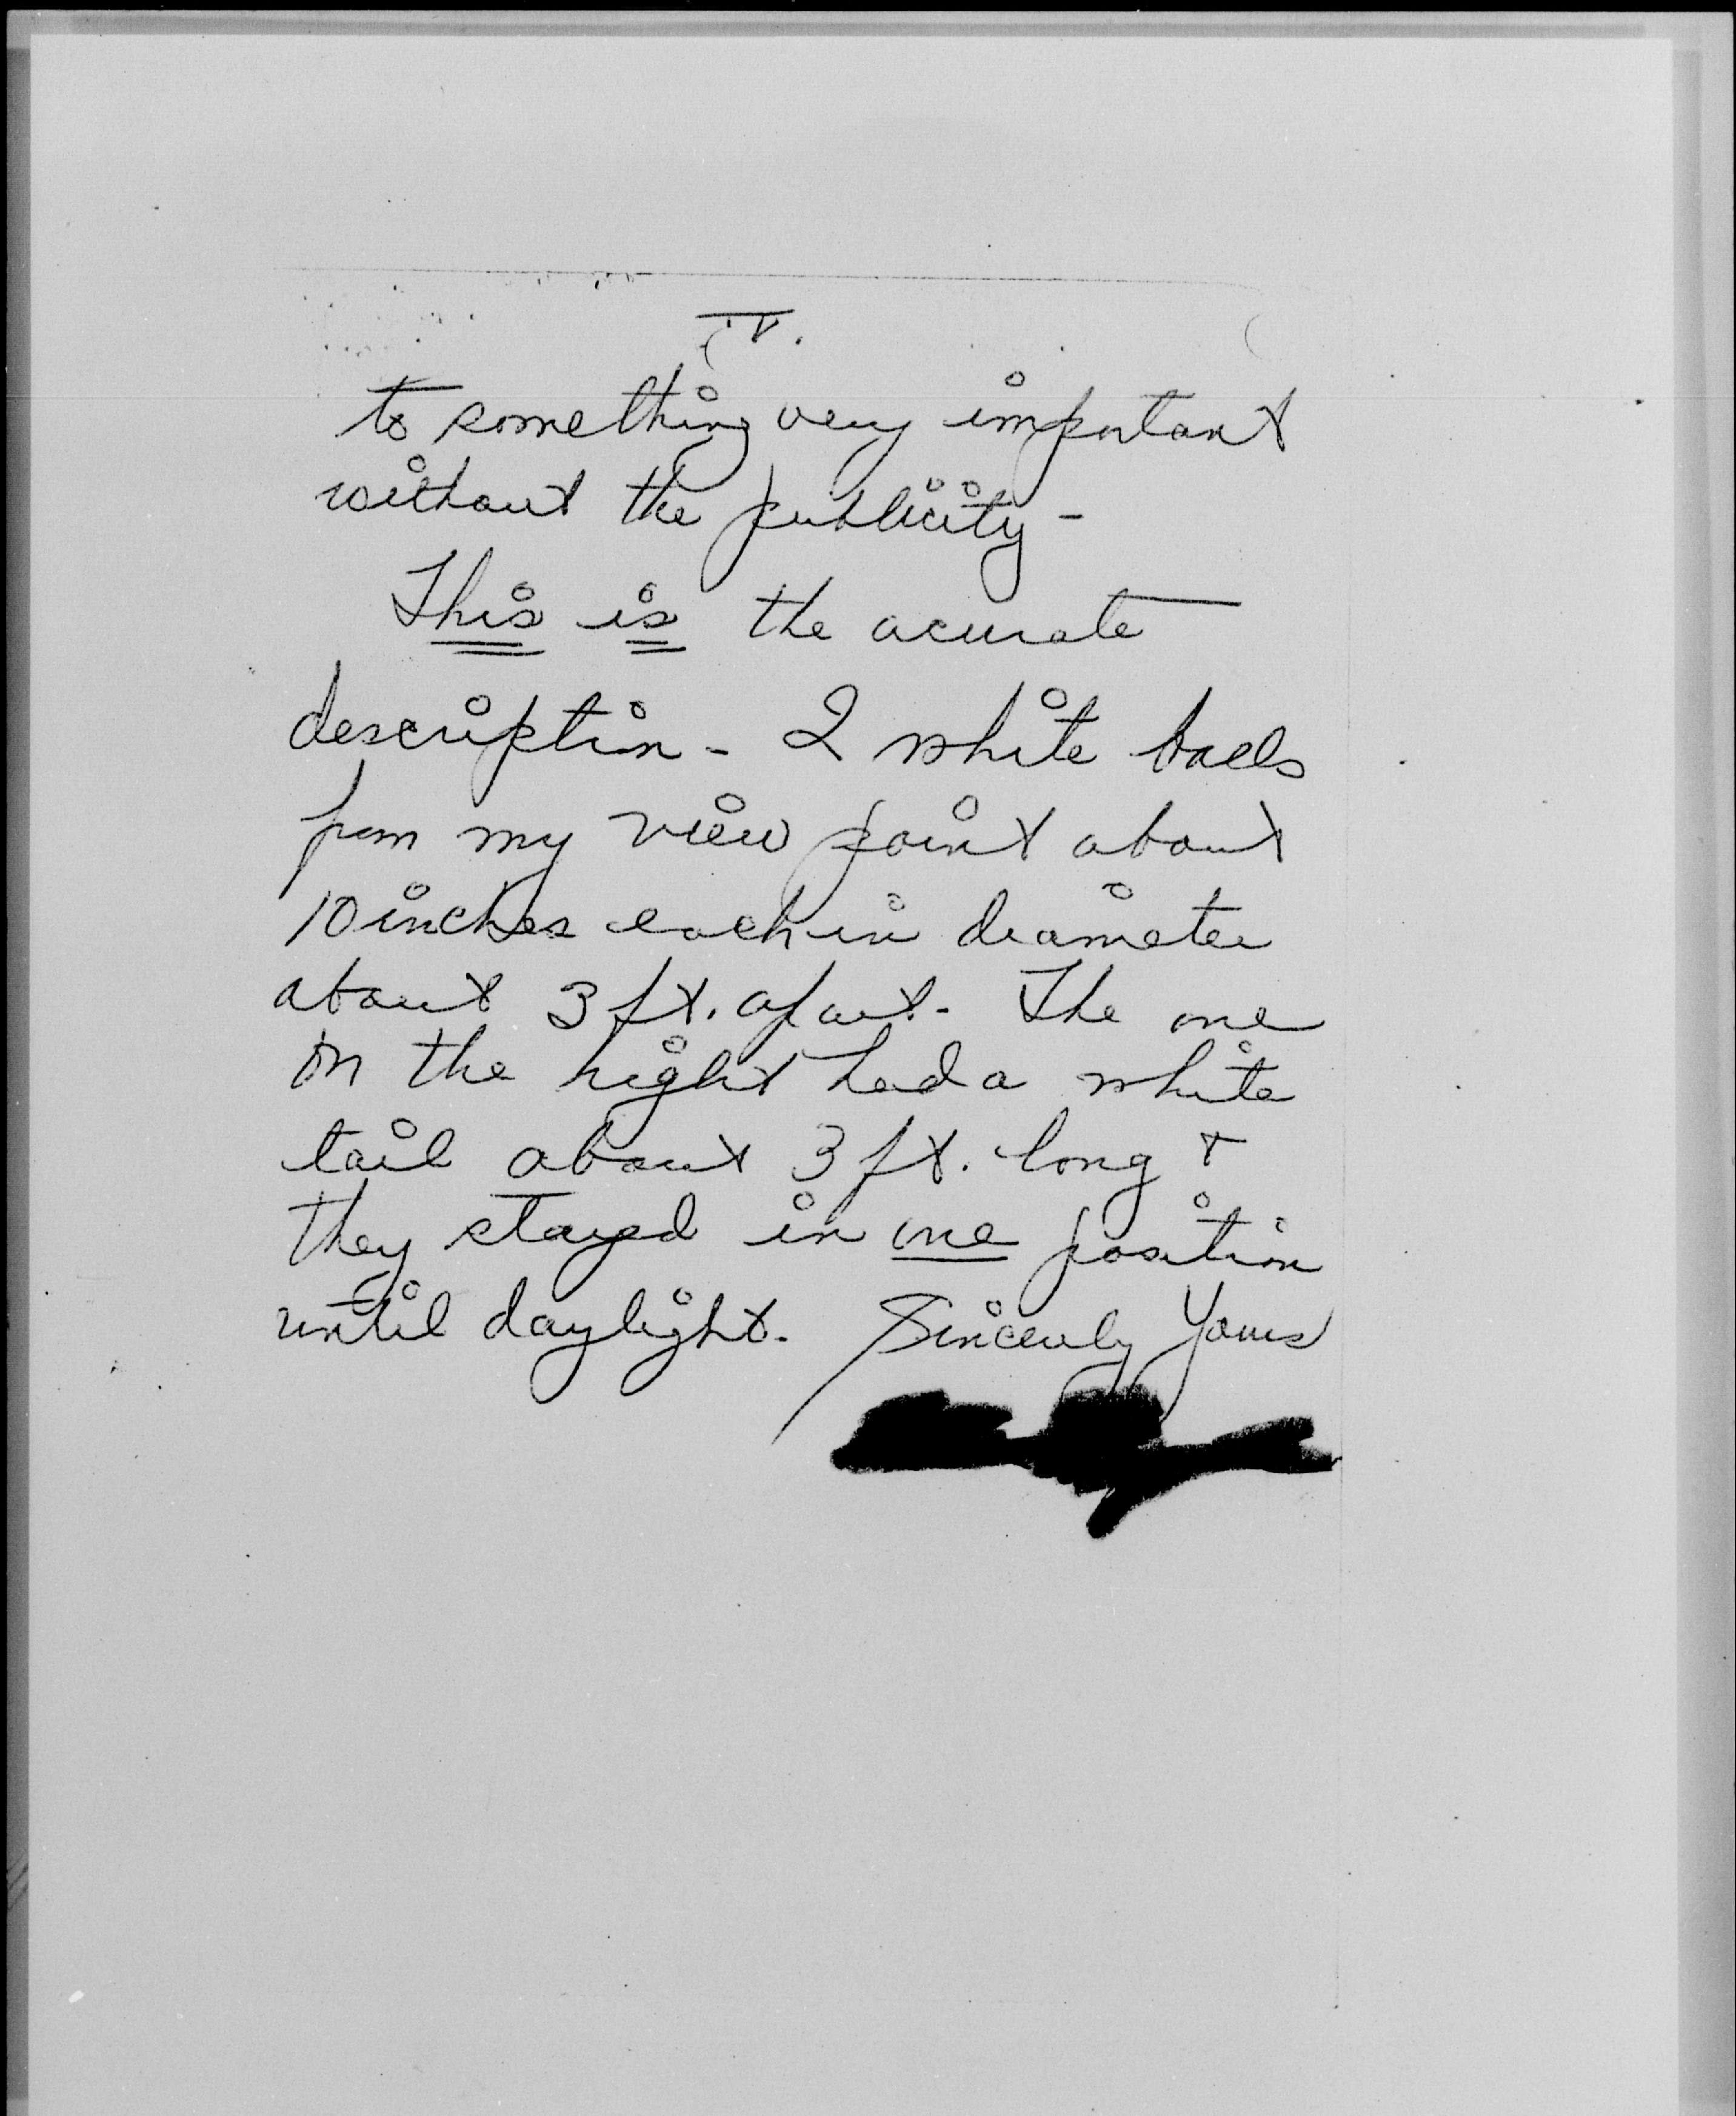 IV.
to something very important
without the publicity -
This is the acurate
description - 2 white balls
from my view point about
10 inches each in diameter
about 3 ft. apart. The one
on the right had a white
tail about 3 ft. long +
they stayed in one position
until daylight. Sincerely Yours